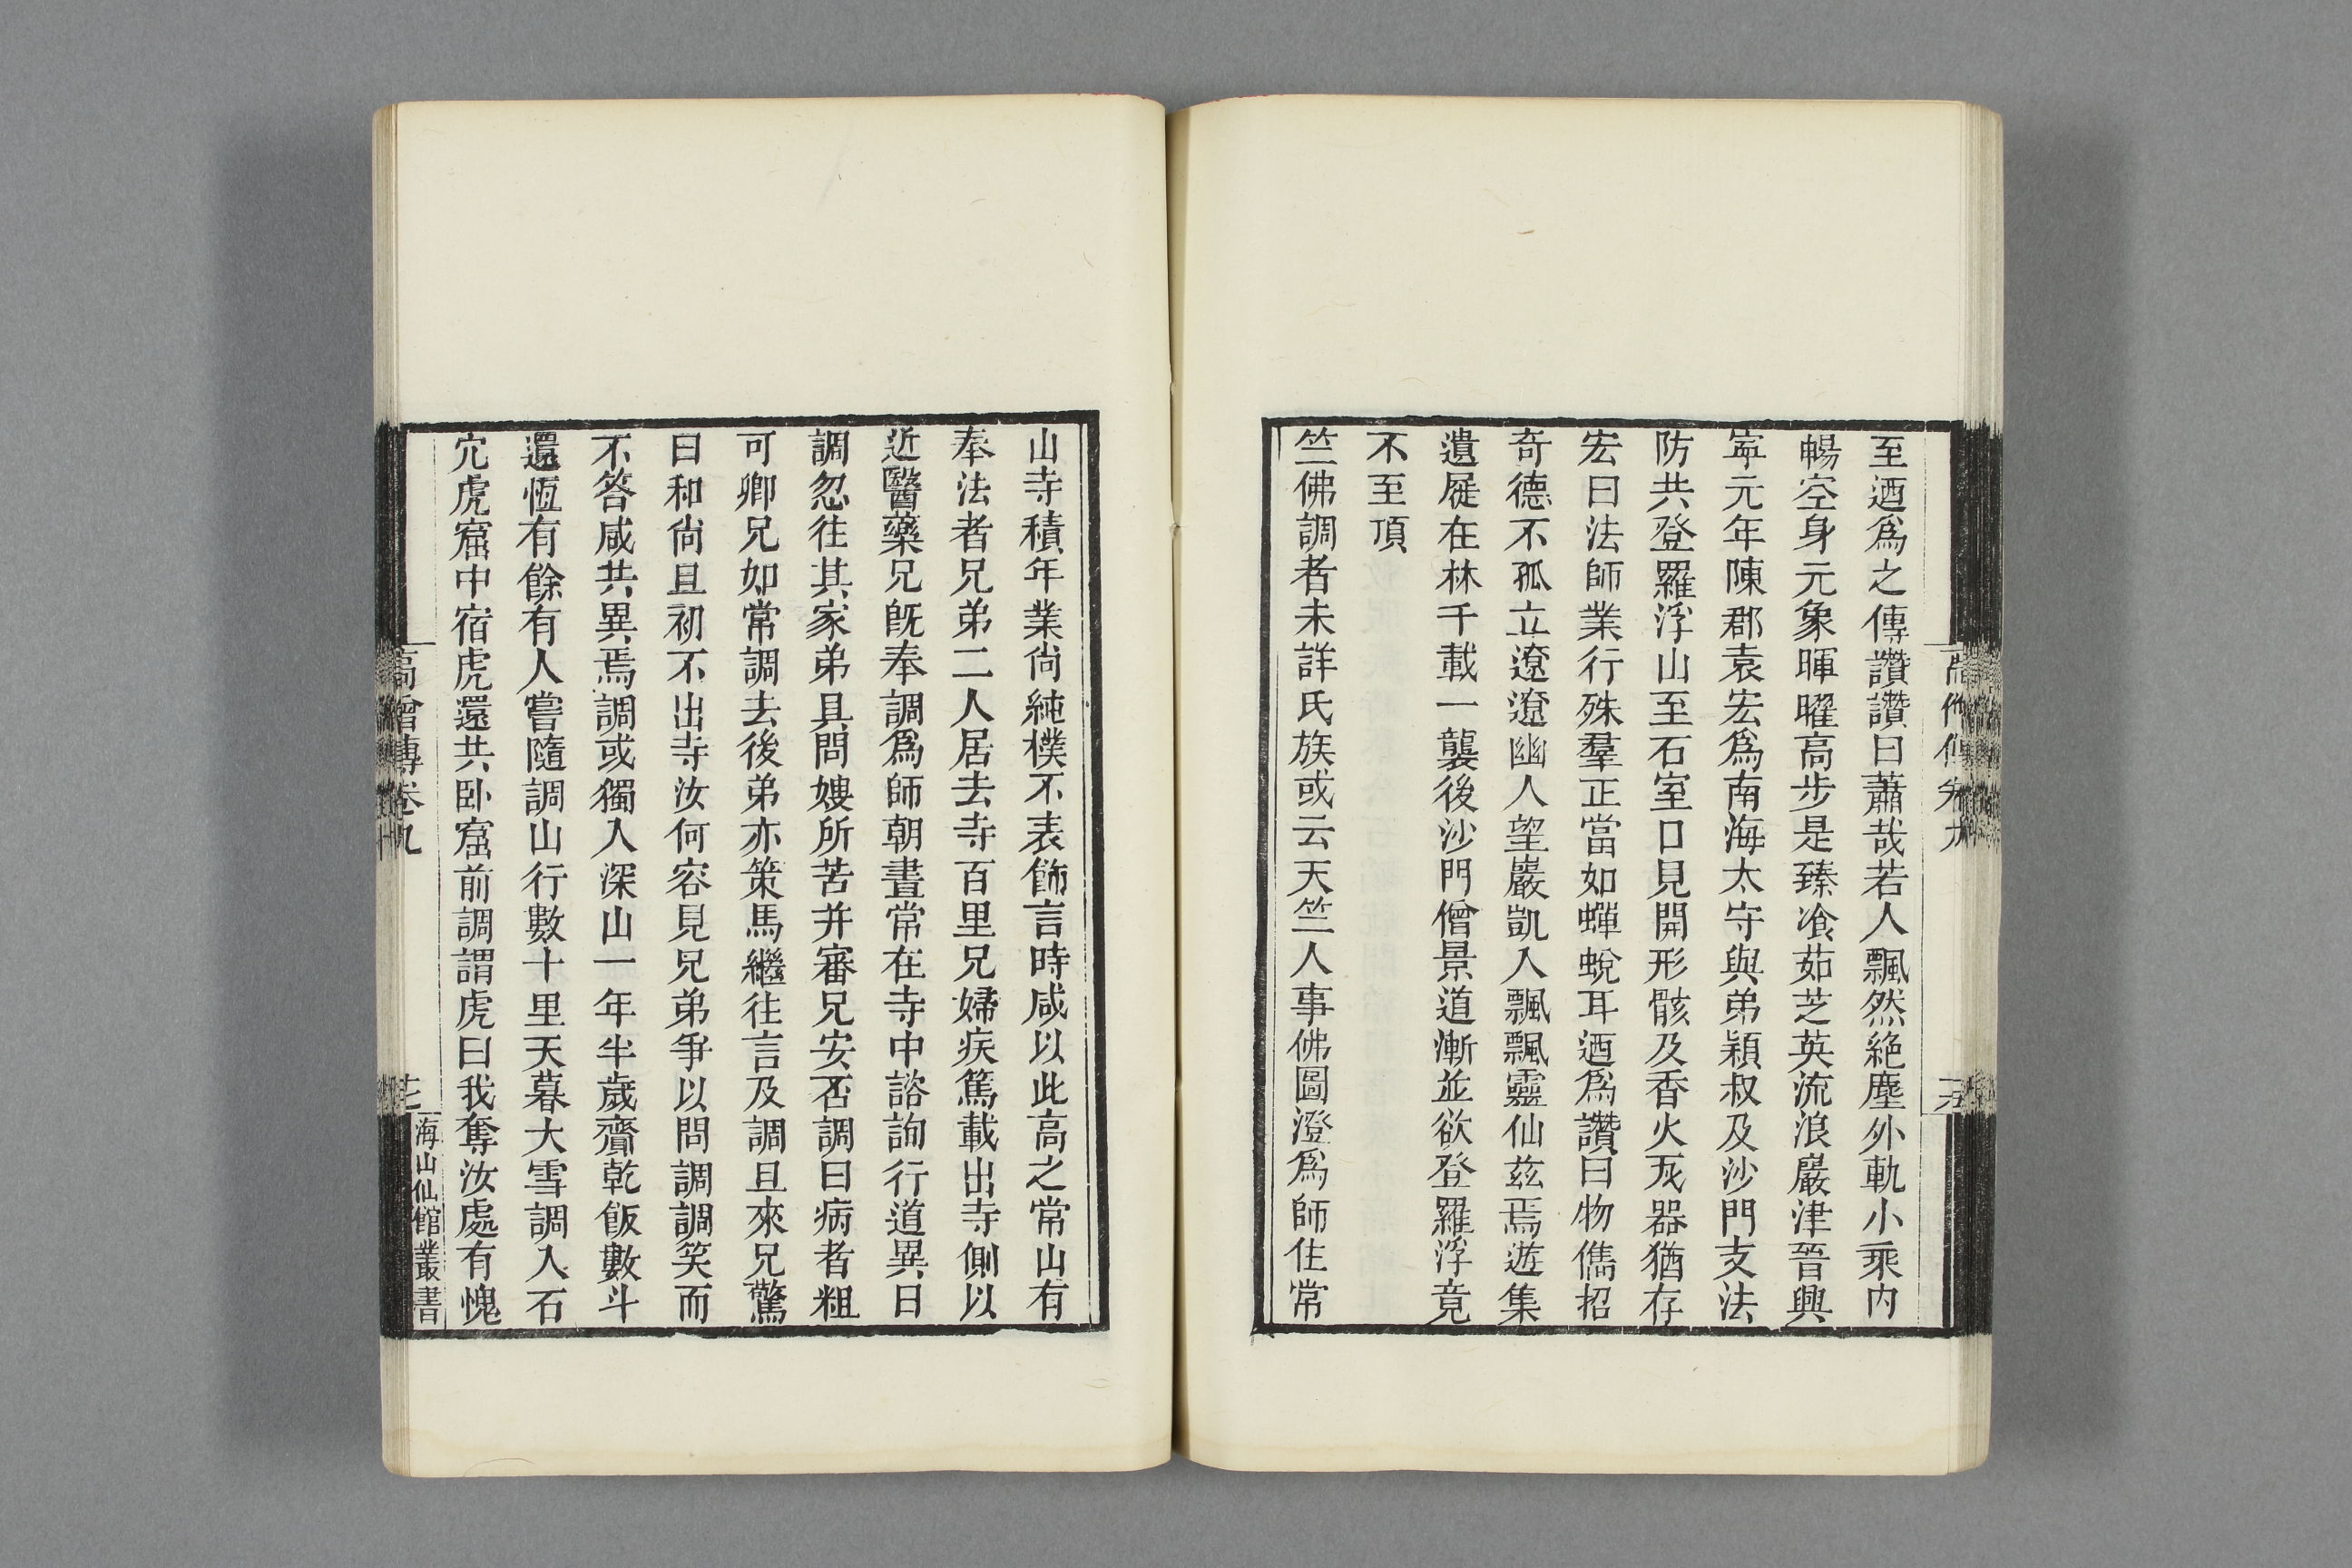 至迺爲之傳讚讚曰蕭哉若人飄然絶塵外軌小乘內
暢空身元象暉曜高步是臻飡茹芝英流浪巖津晉興
寧元年陳郡袁宏爲南海太守與弟穎叔及沙門支法
防共登羅浮山至石室口見開形骸及香火瓦器猶存
宏曰法師業行殊羣正當如蟬蛻耳迺爲讚曰物儁招
奇德不孤立遼遼幽人望巖凱入飄飄靈仙茲焉遊集
遺屣在林千載一襲後沙門僧景道漸並欲登羅浮竟
不至頂
竺佛調者未詳氏族或云天竺人事佛圖澄爲師住常
山寺積年業尙純樸不表飾言時咸以此高之常山有
奉法者兄弟二人居去寺百里兄婦疾篤載出寺側以
近醫藥兄旣奉調爲師朝晝常在寺中諮詢行道異日
調忽往其家弟具問嫂所苦幷審兄安否調曰病者粗
可卿兄如常調去後弟亦策馬繼往言及調旦來兄驚
曰和尙旦初不出寺汝何容見兄弟爭以問調調笑而
不答咸共異焉調或獨入深山一年半歲齎乾飯數斗
還恆有餘有人嘗隨調山行數十里天暮大雪調入石
穴虎窟中宿虎還共卧窟前調謂虎曰我奪汝處有愧
高僧傳卷九
海山仙館叢書